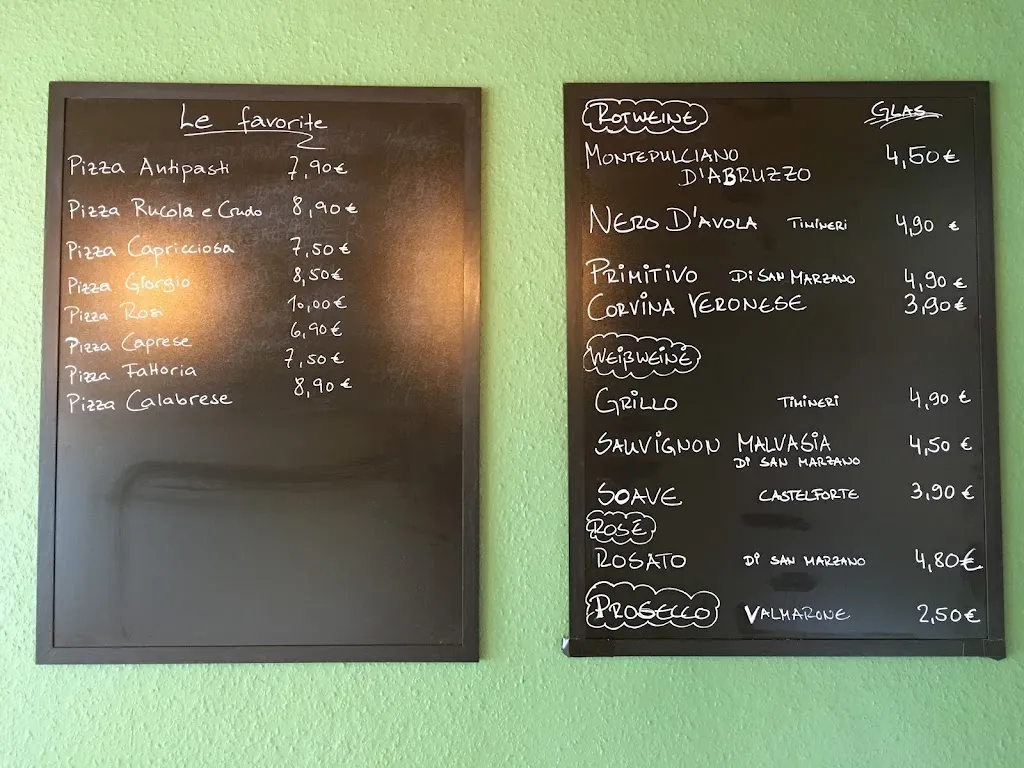 Le favorite
Pizza Antipasti 7,90€
Pizza Rucola e Crudo 8,90€
Pizza Capricciosa 7,50€
Pizza Giorgio 8,50€
Pizza Rosi 10,00€
Pizza Caprese 6,90€
Pizza Fattoria 7,50€
Pizza Calabrese 8,90€
ROTWEINE GLAS
MONTEPULCIANO 4,50€
D'ABRUZZO
NERO D'AVOLA TIMINERI 4,90 €
PRIMITIVO DI SAN MARZANO 4,90€
CORVINA VERONESE 3,90€
WEIßWEINE
GRILLO TIMINERI 4,90 €
SAUVIGNON MALVASIA 4,50 €
DI SAN MARZANO
SOAVE CASTELFORTE 3,90 €
ROSÉ
ROSATO DI SAN MARZANO 4,80€
PROSECCO VALMARONE 2,50€